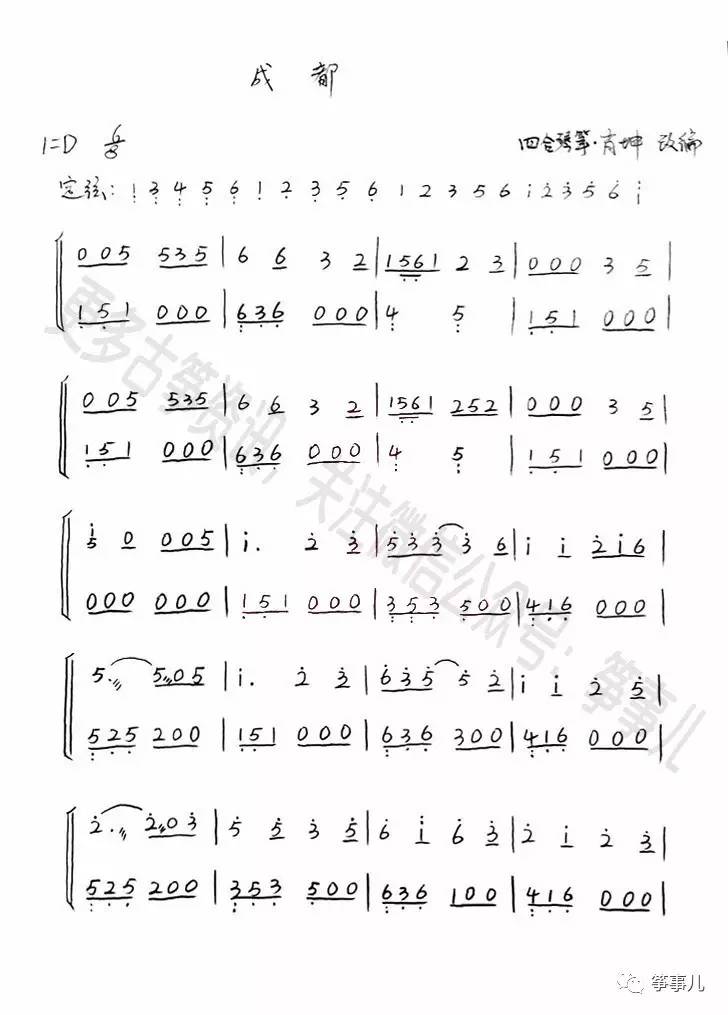 成都
1=D 6/8
四会琴筝·肖坤 改编
定弦: 1 3 4 5 6 1 2 3 5 6 1 2 3 5 6 i 2 3 5 6 i
0 0 5 5 3 5 | 6 6 3 2 | 1 5 6 1 2 3 | 0 0 0 3 5 |
1 5 1 0 0 0 | 6 3 6 0 0 0 | 4 5 | 1 5 1 0 0 0 |
0 0 5 5 3 5 | 6 6 3 2 | 1 5 6 1 2 5 2 | 0 0 0 3 5 |
1 5 1 0 0 0 | 6 3 6 0 0 0 | 4 5 | 1 5 1 0 0 0 |
i 5 0 0 0 5 | i. 2 3 | 5 3 3 3 6 | i i 2 i 6 |
0 0 0 0 0 0 | 1 5 1 0 0 0 | 3 5 3 5 0 0 | 4 1 6 0 0 0 |
5. 5 0 5 | i. 2 3 | 6 3 5 5 2 | i i 2 5 |
5 2 5 2 0 0 | 1 5 1 0 0 0 | 6 3 6 3 0 0 | 4 1 6 0 0 0 |
2. 2 0 3 | 5 5 3 5 | 6 i 6 3 | 2 i 2 3 |
5 2 5 2 0 0 | 3 5 3 5 0 0 | 6 3 6 1 0 0 | 4 1 6 0 0 0 |
更多古筝资讯,关注微信公众号:筝事儿
筝事儿